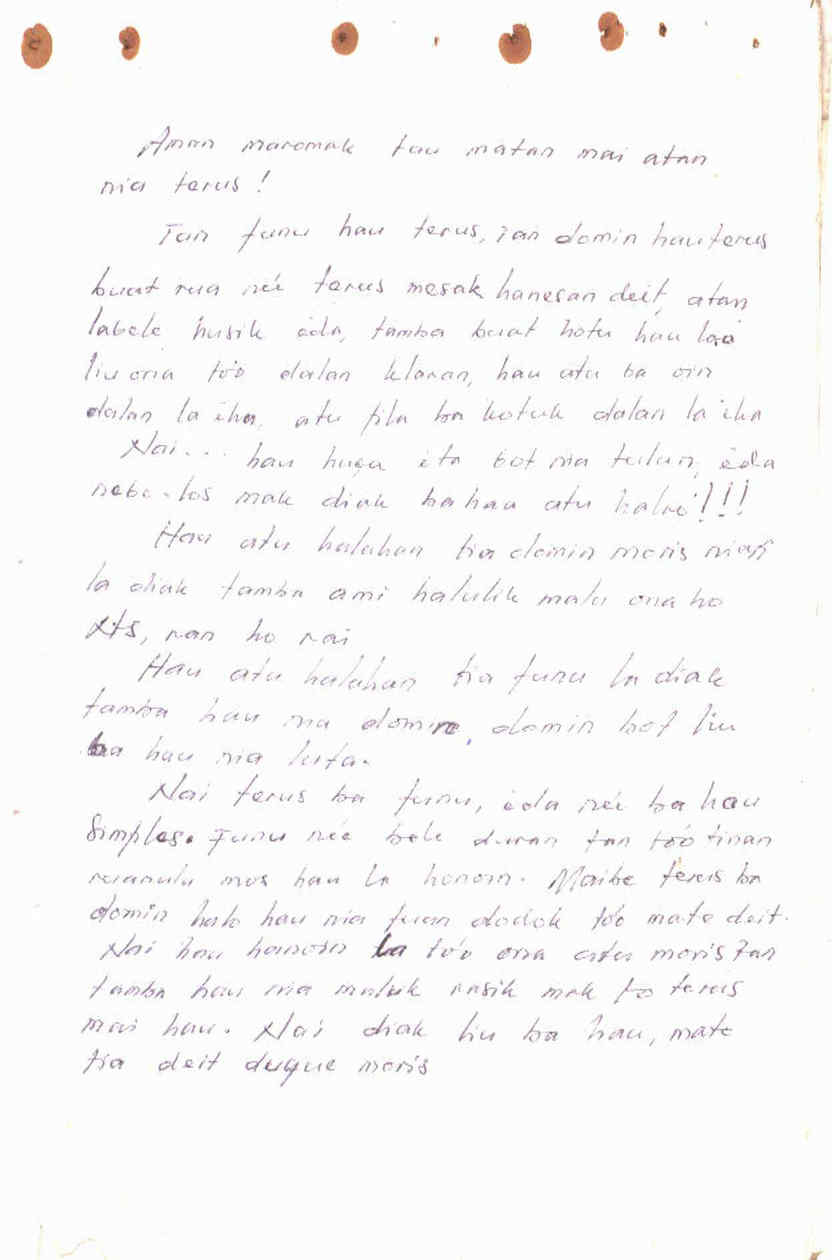 Aman maromak tau matan mai atan
nia terus!
Tan funu hau terus, Tan domin hau terus
buat rua neé terus mesak hanesan deit, atan
labele husik ida, tamba buat hotu hau lao
liu ona too dalan klaran, hau atu ba oin
dalan la iha, atu fila ba kotuk dalan la iha
Nai... hau husu ita bot nia tulun, ida
nebe los mak diak ba hau atu halao!!!
Hau atu halahan tia domin moris
la diak tamba ami halulik malu ona ho
ran ho rai
Hau atu halahan tia funu la diak
tamba hau nia domin, domin bot liu
ba hau nia luta.
Nai terus ba funu, ida neé ba hau
Simples. Funu neé bele duran tan too tinan
ruanulu mos hau la hanoin. Maibe terus ba
domin halo hau nia fuan dodok too mate deit.
Nai hau hanoin la too ona atu moris tan
tamba hau nia maluk rasik mak fo terus
mai hau. Nai diak liu ba hau, mate
tia deit duque moris